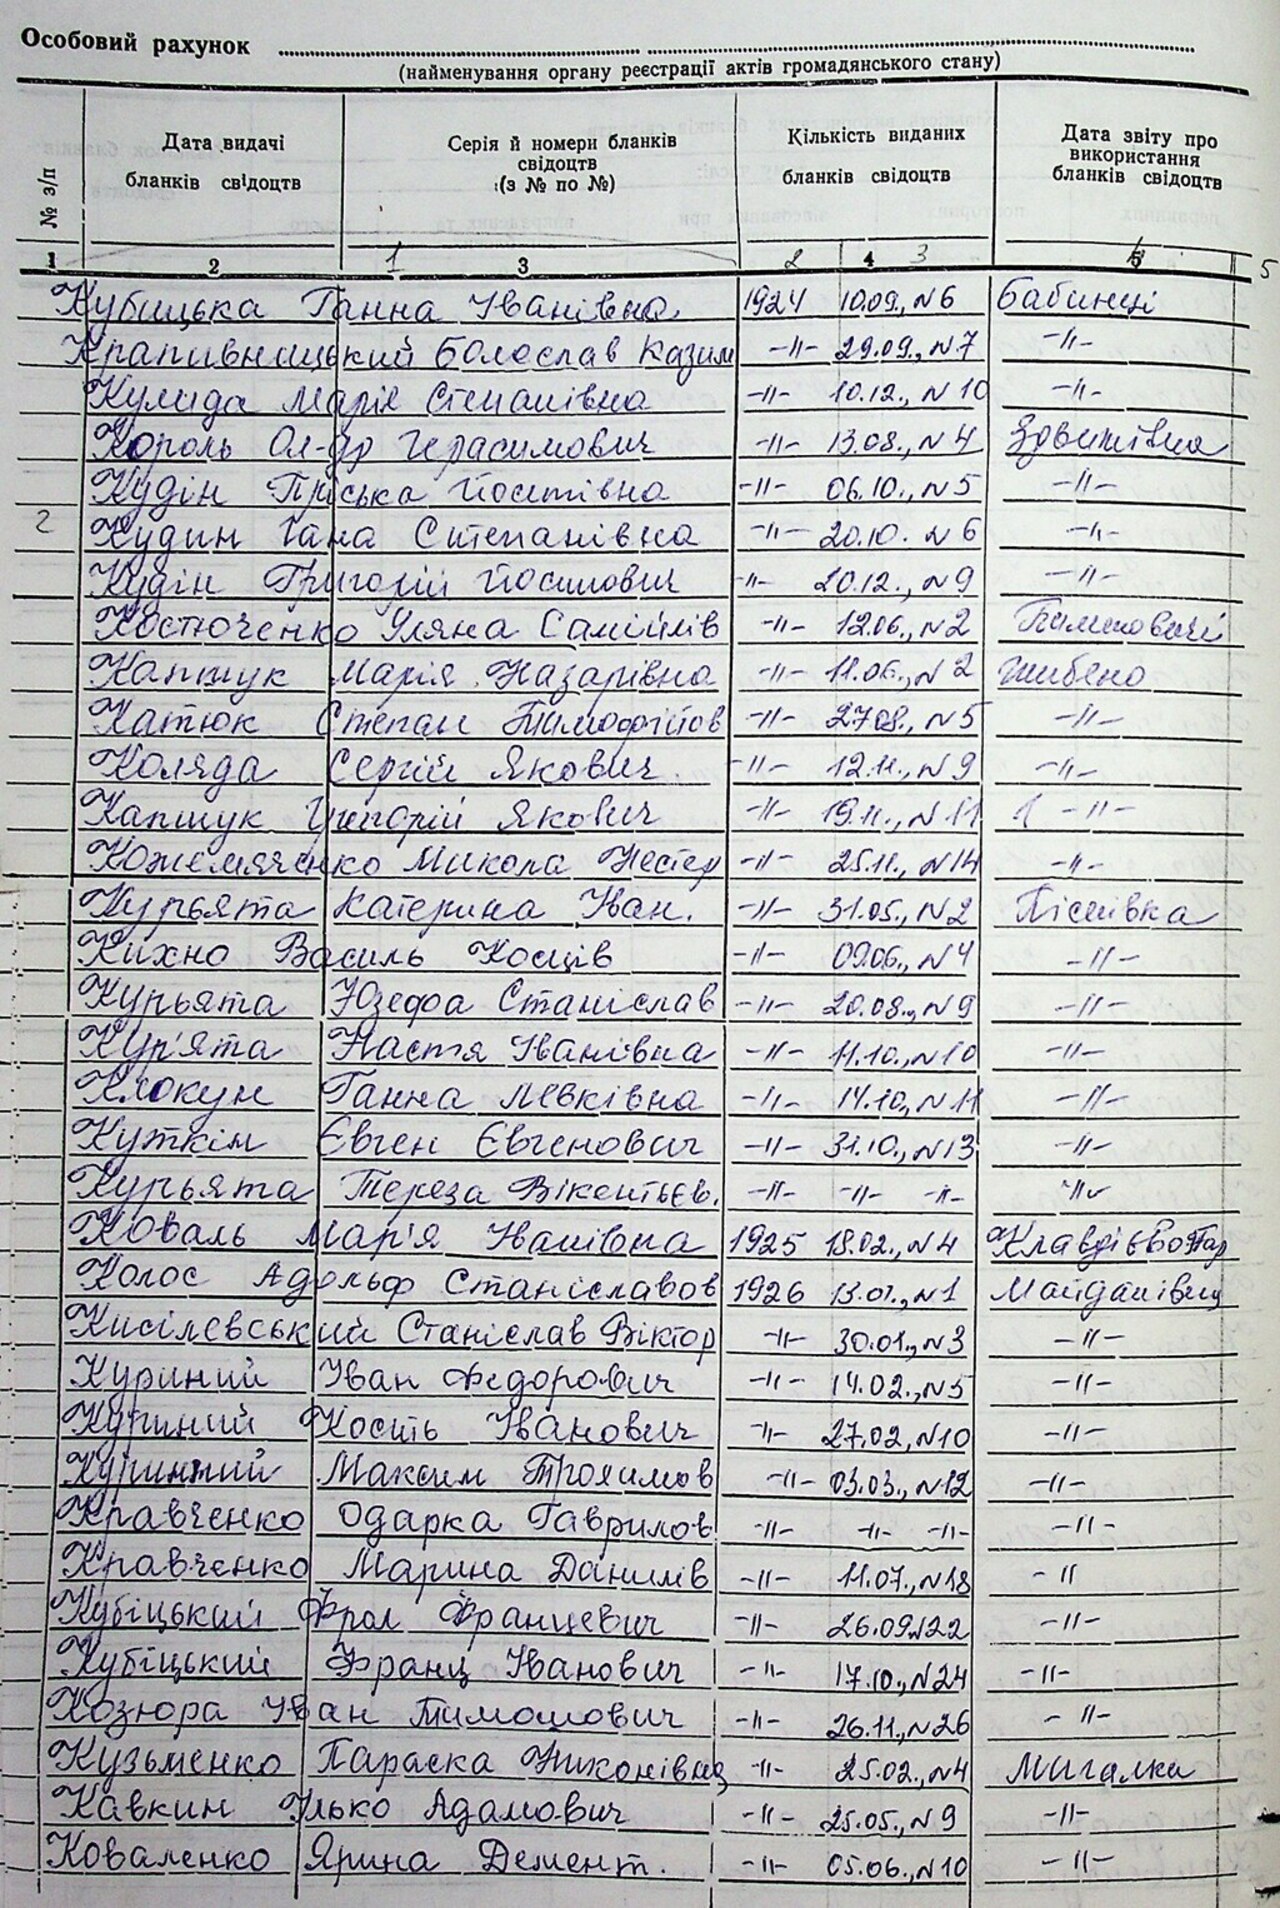 Особовий рахунок
(найменування органу реєстрації актів громадянського стану)
№ з/п
Дата видачі бланків свідоцтв
Серія й номери бланків свідоцтв (з № по №)
Кількість виданих бланків свідоцтв
Дата звіту про використання бланків свідоцтв
1 2 1 3 2 4 3 5
Кубицька Ганна Іванівна. 1924 10.09., N6 Бабинці
Крапивницький Болослав Казим -"- 29.09., N7 -"-
Кулида Марія Степанівна -"- 10.12., N10 -"-
Король Ол-др Герасимович -"- 13.08., N4 Здвижівка
Кудін Пріська Йосипівна -"- 06.10., N5 -"-
2 Кудин Гана Степанівна -"- 20.10. N6 -"-
Кудін Григорій Йосипович -"- 20.12., N9 -"-
Костюченко Уляна Самійлів -"- 12.06., N2
Капшук Марія Назарівна -"- 11.06., N2
Катюк Степан Тимофійов -"- 27.08., N5 -"-
Коляда Сергій Якович -"- 12.11., N9 -"-
Капшук Григорій Якович -"- 19.11., N11 -"-
Кожемяченко Микола Нестер -"- 25.11., N14 -"-
Курьята Катерина Іван. -"- 31.05., N2 Пісківка
Кихно Василь Косців -"- 09.06., N4 -"-
Курьята Юзефа Станіслав -"- 20.08., N9 -"-
Кур'ята Настя Іванівна -"- 11.10., N10 -"-
Клокун Ганна Левківна -"- 14.10., N11 -"-
Куткін Євген Євгенович -"- 31.10., N13 -"-
Курьята Тереза Вікентьєв. -"- -"- -"- -"-
Коваль Мар'я Іванівна 1925 18.02., N4
Колос Адольф Станіславов 1926 13.01., N1 Майданівка
Кисілевський Станіслав Віктор -"- 30.01., N3 -"-
Куриний Іван Федорович -"- 14.02., N5 -"-
Куриний Кость Іванович -"- 27.02, N10 -"-
Куринний Максим Трохимов -"- 03.03., N12 -"-
Кравченко Одарка Гаврилов -"- -"- -"- -"-
Кравченко Марина Данилів -"- 11.07., N18 -"
Кубіцький Фрол Францевич -"- 26.09.N22 -"-
Кубіцький Франц Іванович -"- 17.10., N24 -"-
Козюра Іван Тимошович -"- 26.11., N26 -"-
Кузьменко Параска Никонівна -"- 25.02., N4 Мигалки
Кавкин Ілько Адамович -"- 25.05., N9 -"-
Коваленко Ярина Демент. -"- 05.06., N10 -"-